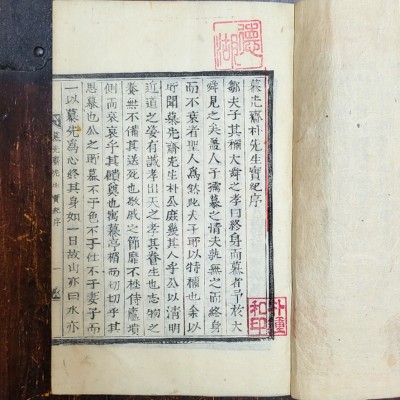 慕先齋朴先生實紀序
鄒夫子其稱大舜之孝曰終身而慕者予於大
舜見之矣盖人子孰慕之情夫孰無之而終身
而不衰者聖人爲然此夫子所以特稱也以
所聞慕先齋先生朴公庶幾其人乎公以清明
近道之姿有誠孝出天之孝其養生也志物之
養無不備其送死也敬戚之節靡不極侍廬墳
側而哀哀乎其
思慕也公之所慕不于色不于仕不于妻子而
一以慕先爲心終其身如一日故山亦曰水亦
慕先齋 實紀序
一